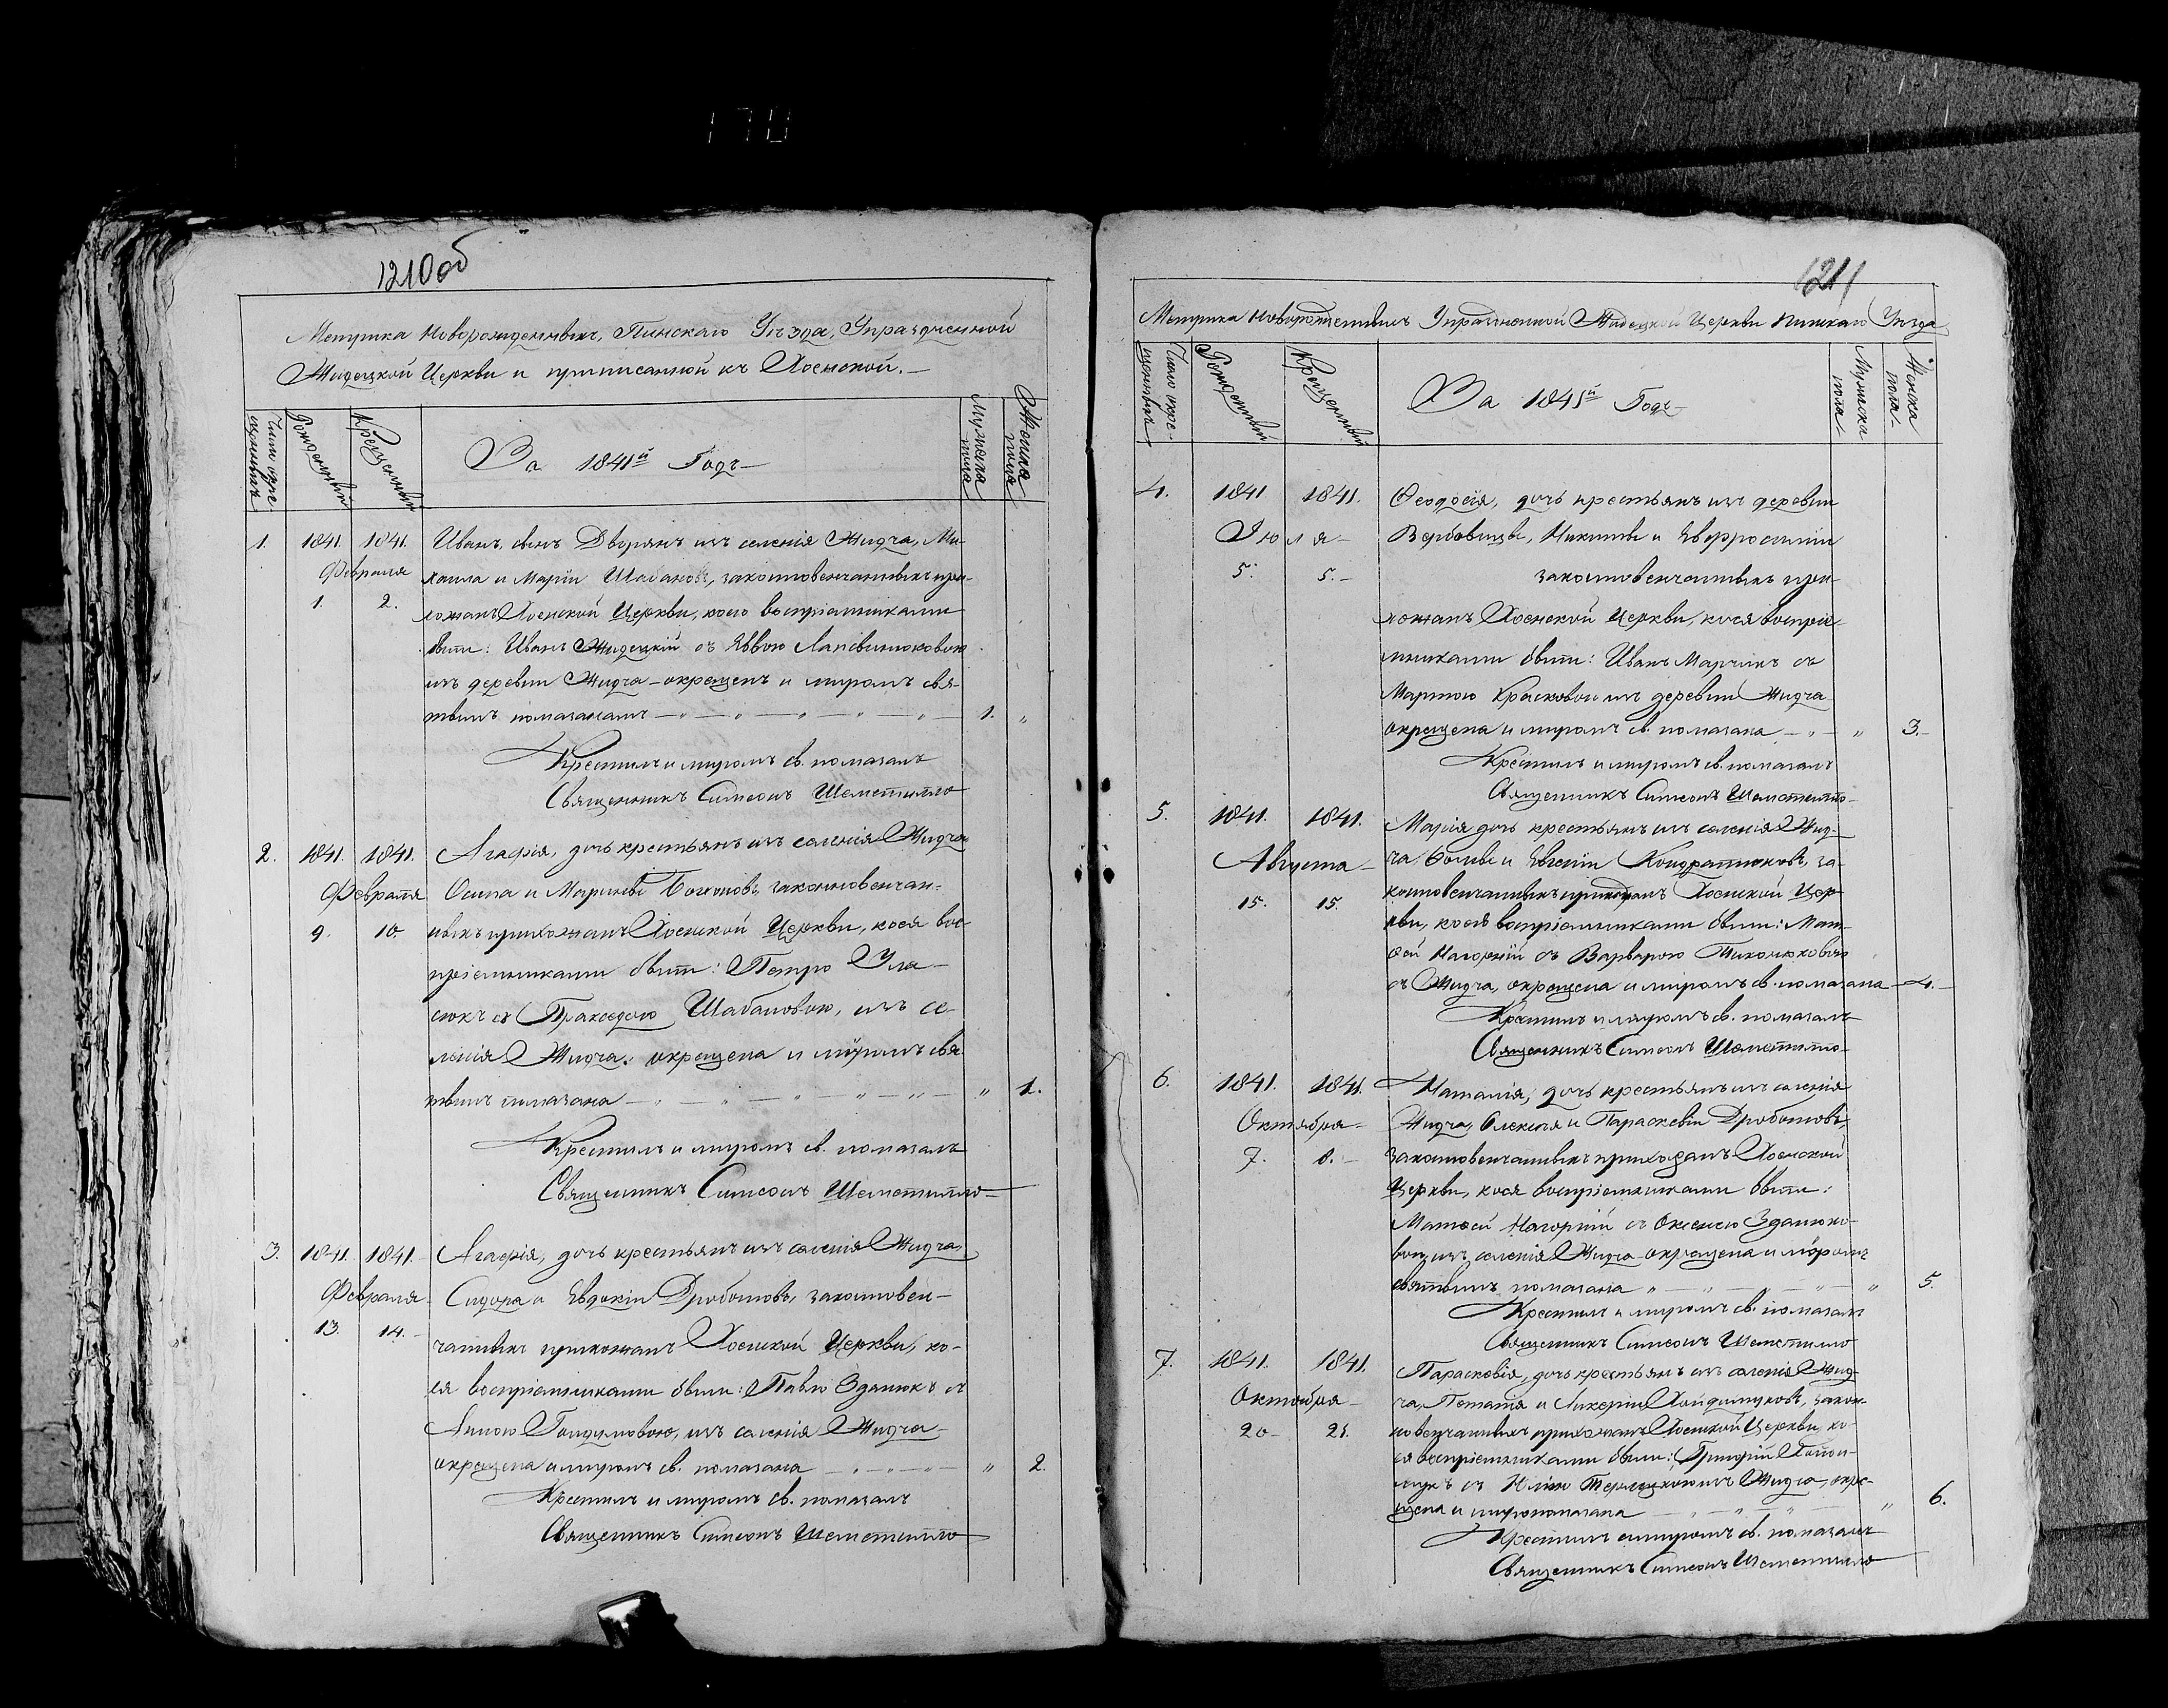 170
1210об
Метрика Новорожденныхъ, Пинскаго Уѣзда, Упраздненной
Жидецкой Церкви и приписанной къ Хоенской.—
Число кре-
щенныхъ
Рожденный
Крещенный
За 1841й Годъ—
Мужска
пола
Женска
пола
1. 1841. 1841. Иванъ, сынъ Дворянъ изъ селенія Жидча, Ми-
Февраля хаила и Маріи Шабановъ, законновенчанныхъ при-
1. 2. хожанъ Хоенской Церкви, коего воспріемниками
были: Иванъ Жидецкій съ Яввою
изъ деревни Жидча — окрещенъ и миромъ свя-
тымъ помазанъ — „ — „ — „ — „ — „ — 1. „
Крестилъ и миромъ св. помазалъ
Священникъ Симеонъ Шеметилло
2. 1841. 1841. Агафія, дочь крестьянъ изъ селенія Жидча
Февраля Осипа и Марины законновенчан-
9. 10. ныхъ прихожанъ Хоенской Церкви, коея вос-
пріемниками были: Петро Ула-
сюкъ съ Пракседою Шабановою, изъ се-
ленія Жидча: окрещена и мѵромъ свя-
тымъ помазана — „ — „ — „ — „ — „ — „ 1.
Крестилъ и миромъ св. помазалъ
Священникъ Симеонъ Шеметилло
3. 1841. 1841. Агафія, дочь крестьянъ изъ селенія Жидча,
Февраля Сидора и Евдокіи Дроботовъ, законновен-
13. 14. чанныхъ прихожанъ Хоенской Церкви, ко-
ея воспріемниками были: Павло Зданюкъ съ
Анною изъ селенія Жидча—
окрещена и миромъ св. помазана — „ — „ — „ — „ 2.
Крестилъ и миромъ св. помазалъ
Священникъ Симеонъ Шеметилло
1211
Метрика Новорожденныхъ Упраздненной Жидецкой Церкви Пинскаго Уѣзда
Число кре-
щенныхъ
Рожденный
Крещенный
За 1841й Годъ—
Мужска
пола
Женска
пола
4. 1841 1841. Феодосія, дочь крестьянъ изъ деревни
Іюля— Вербовицы, Никиты и Евфросиніи
5. 5.— законновенчанныхъ при-
хожанъ Хоенской Церкви, коея воспріе-
мниками были: Иванъ Марчикъ съ
Мартою Красковою изъ деревни Жидча
окрещена и миромъ св. помазана — „ — „ 3.—
Крестилъ и миромъ св. помазалъ
Священникъ Симеонъ Шеметилло
5. 1841. 1841. Марія дочь крестьянъ изъ селенія Жид-
Августа— ча, Фомы и Евгеніи Кондратюковъ, за-
15. 15. конновенчанныхъ прихожанъ Хоенской Цер-
кви, коея воспріемниками были: Мат-
фей Нагорній съ Варварою Тихонюковою
съ Жидча, окрещена и миромъ св. помазана — 4.—
Крестилъ и миромъ св. помазалъ
Священникъ Симеонъ Шеметилло
6. 1841. 1841. Наталія, дочь крестьянъ изъ селенія
Октября— Жидча, Олексія и Параскевіи Дроботовъ,
7. 8.— законновенчанныхъ прихожанъ Хоенской
Церкви, коея воспріемниками были:
Матфей Нагорній съ Оксенею Зданюко-
вою, изъ селенія Жидча окрещена и мѵромъ
святымъ помазана „ — „ — „ — „ — „ 5.
Крестилъ и миромъ св. помазалъ
Священникъ Симеонъ Шеметилло
7. 1841. 1841. Парасковія, дочь крестьянъ изъ селенія Жид-
Октября— ча, и закон-
20— 21. новенчанныхъ прихожанъ Хоенской Церкви, ко-
ея воспріемниками были: Григорій
съ изъ Жидча, окре-
щена и миропомазана — „ — „ — „ 6.
Крестилъ и миромъ св. помазалъ
Священникъ Симеонъ Шеметилло